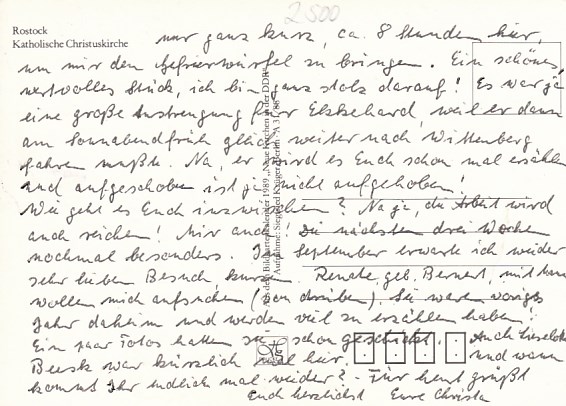 2500
Rostock
Katholische Christuskirche
nur ganz kurz, ca. 8 Stunden hier,
um mir den Gefrierwürfel zu bringen. Ein schönes,
wertvolles Stück, ich bin ganz stolz darauf! Es war ja
eine große Anstrengung für Ekkehard, weil er dann
am Sonnabendfrüh gleich weiter nach Wittenberg
fahren mußte. Na, er wird es Euch schon mal erzählen
und aufgeschoben ist ja nicht aufgehoben!
Wie geht es Euch inzwischen? Na ja, die Arbeit wird
auch reichen! Mir auch! Die nächsten drei Wochen
nochmal besonders. Im September erwarte ich wieder
sehr lieben Besuch, Renate, geb. Bernert, mit
wollen mich aufsuchen (von drüben). Sie waren voriges
Jahr daheim und werden viel zu erzählen haben.
Ein paar Fotos hatten sie schon geschickt. Auch Lieselotte
war kürzlich mal hier, und wann
kommt Ihr endlich mal wieder? - Für heut grüßt
Euch herzlichst Eure Christa
Aus dem Bildkartenkalender 1989 „Neue Kirchen in der DDR“